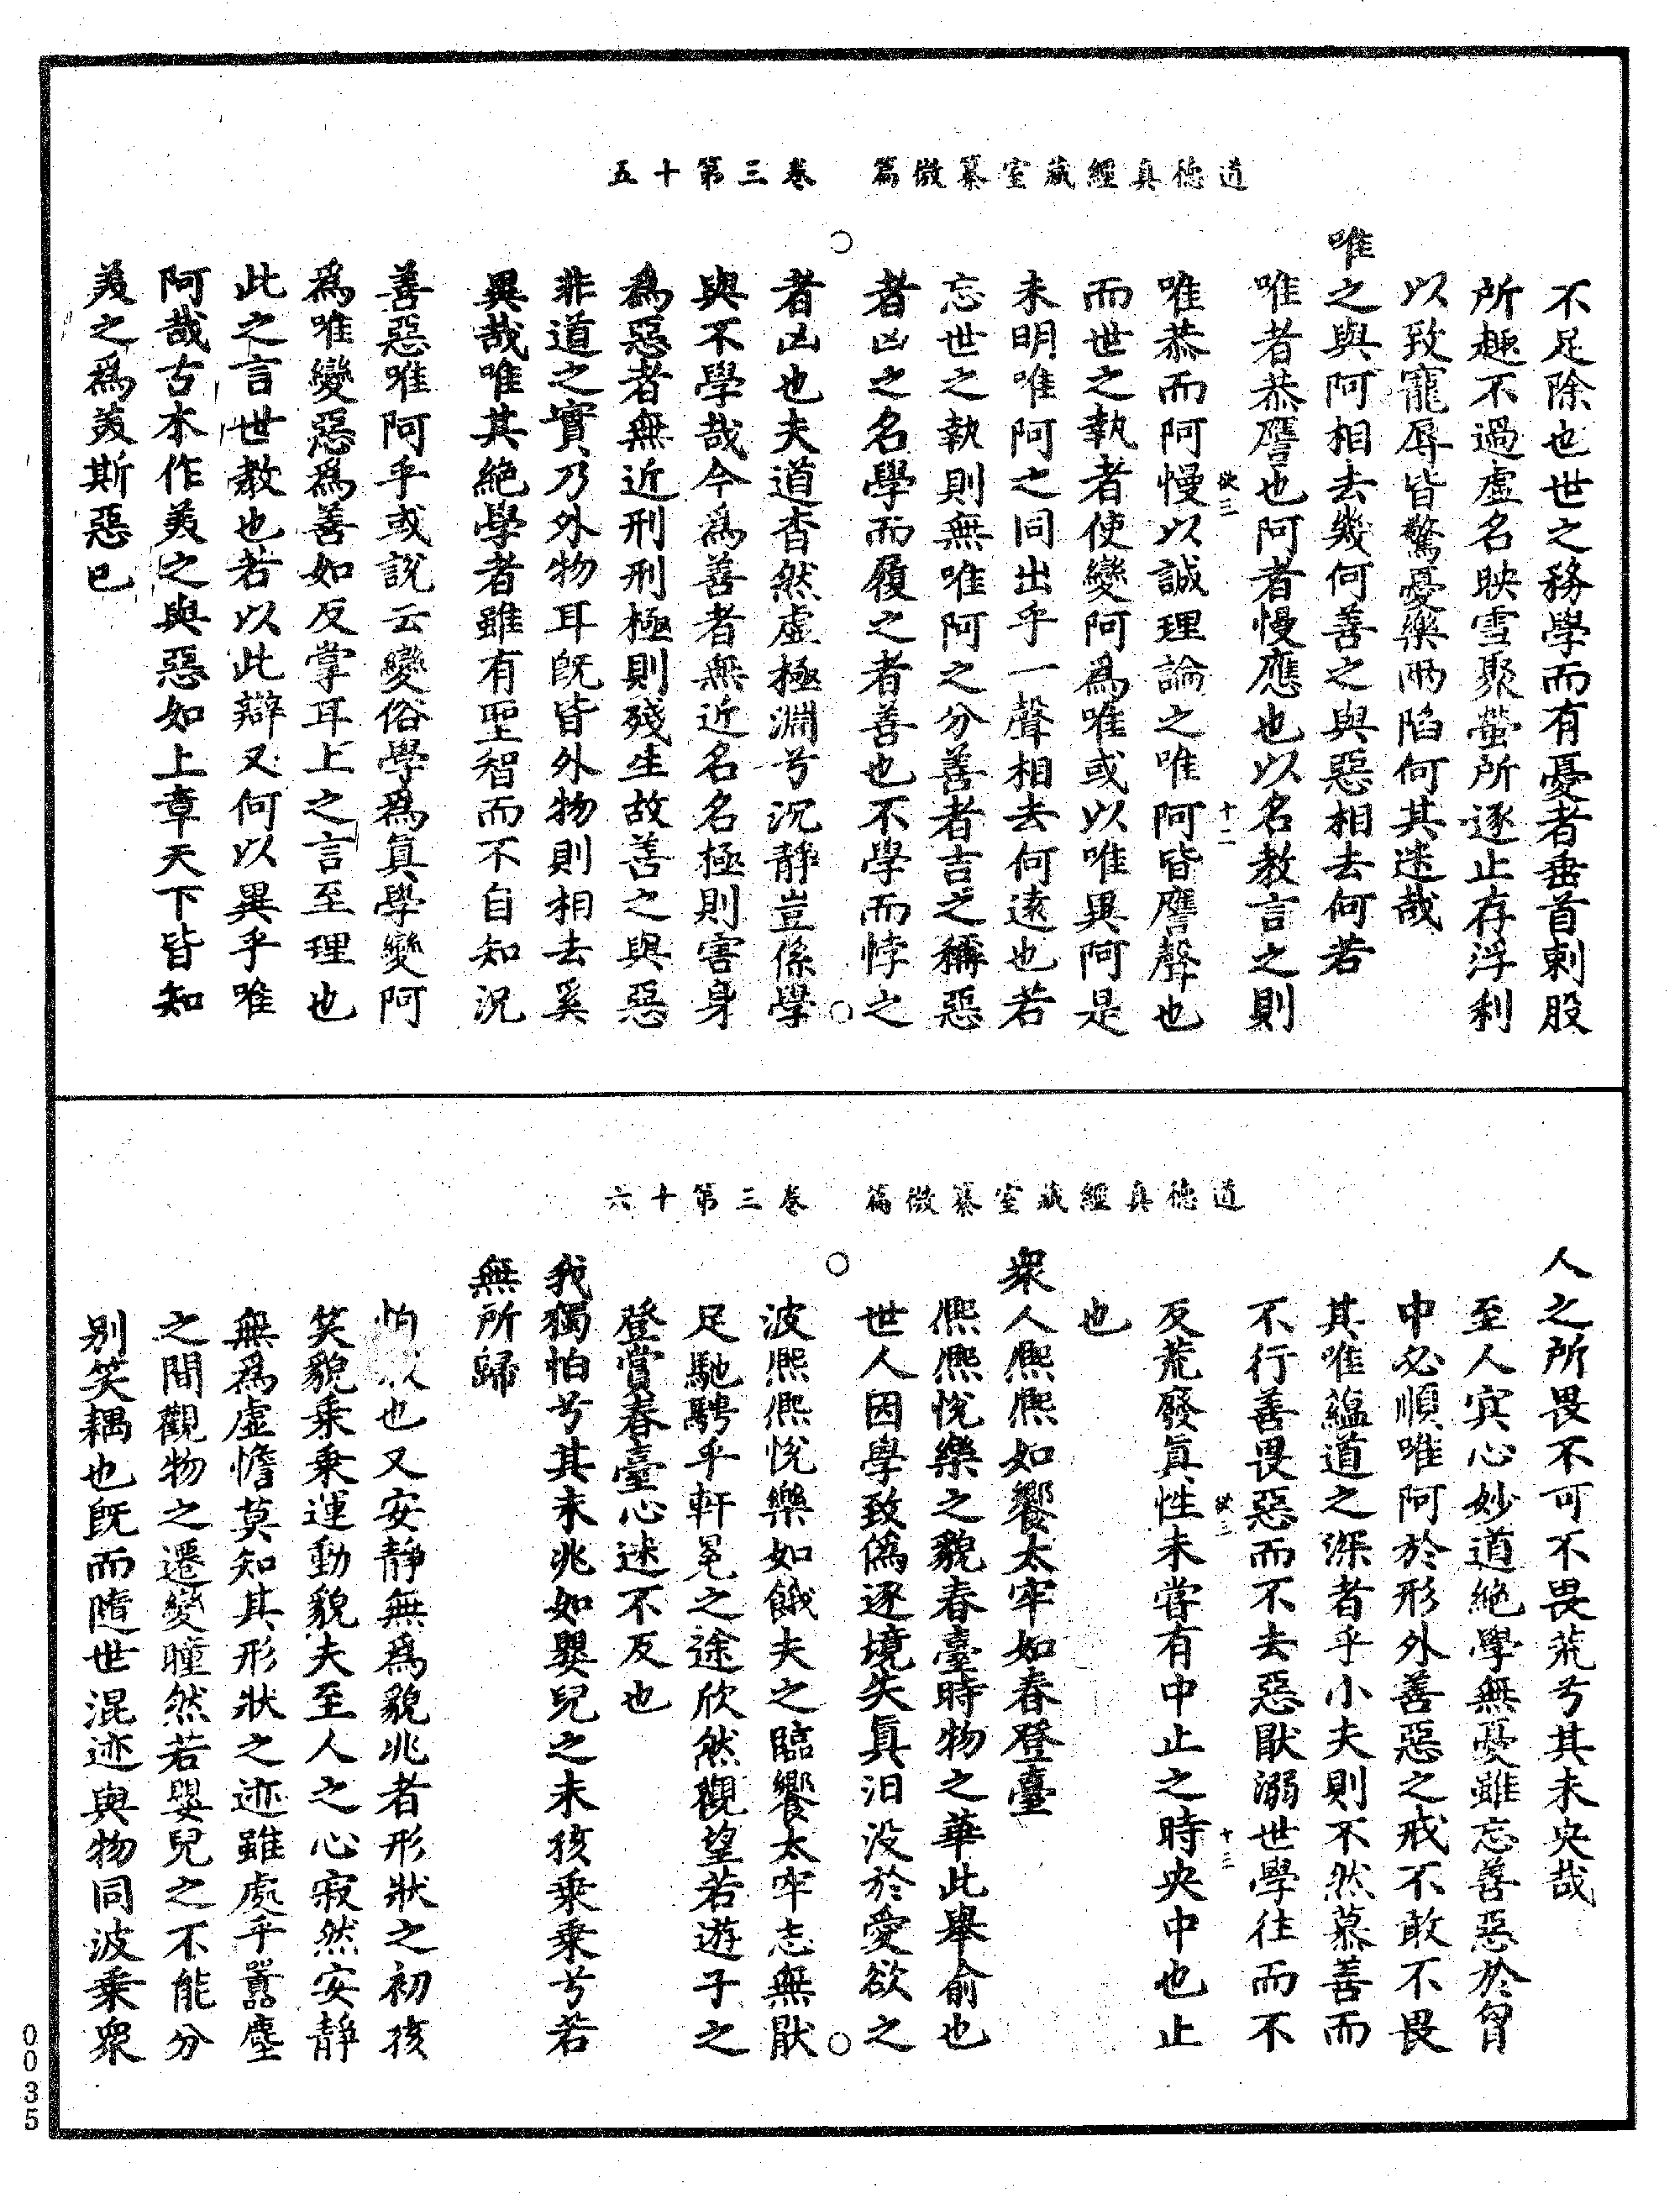 道德真經藏室纂微篇　卷三第十五
不足除也世之務學而有憂者垂首刺股
所趣不過虛名映雪聚螢所逐止存浮利
以致寵辱皆驚憂樂兩陷何其迷哉
唯之與阿相去幾何善之與惡相去何若
唯者恭譍也阿者慢應也以名教言之則
欲三　十二
唯恭而阿慢以誠理論之唯阿皆譍聲也
而世之執者使變阿為唯或以唯異阿是
未明唯阿之同出乎一聲相去何遠也若
忘世之執則無唯阿之分善者吉之稱惡
者凶之名學而履之者善也不學而悖之
者凶也夫道杳然虛極淵兮沉靜豈係學
與不學哉今為善者無近名名極則害身
為惡者無近刑刑極則殘生故善之與惡
非道之實乃外物耳既皆外物則相去奚
異哉唯其絕學者雖有聖智而不自知況
善惡唯阿乎或說云變俗學為真學變阿
為唯變惡為善如反掌耳上之言至理也
此之言世教也若以此辯又何以異乎唯
阿哉古本作美之與惡如上章天下皆知
美之為美斯惡已
道德真經藏室纂微篇　卷三第十六
人之所畏不可不畏荒兮其未央哉
至人㝠心妙道絕學無憂雖忘善惡於胷
中必順唯阿於形外善惡之戒不敢不畏
其唯蘊道之深者乎小夫則不然慕善而
不行善畏惡而不去惡猒溺世學往而不
欲三　十三
反荒廢真性未嘗有中止之時央中也止
也
衆人熈熈如饗太牢如春登臺
熈熈悅樂之貌春臺時物之華此舉俞也
世人因學致偽逐境失真汨没於愛欲之
波熈熈悅樂如餓夫之臨饗太牢志無猒
足馳騁乎軒冕之途欣然觀望若遊子之
登賞春臺心迷不反也
我獨怕兮其未兆如嬰兒之未孩乗乗兮若
無所歸
怕也又安靜無為貌兆者形狀之初孩
笑貌乗乗運動貌夫至人之心寂然安靜
無為虛憺莫知其形狀之迹雖處乎囂塵
之間觀物之遷變瞳然若嬰兒之不能分
别笑耦也旣而隨世混迹與物同波乗衆
0035